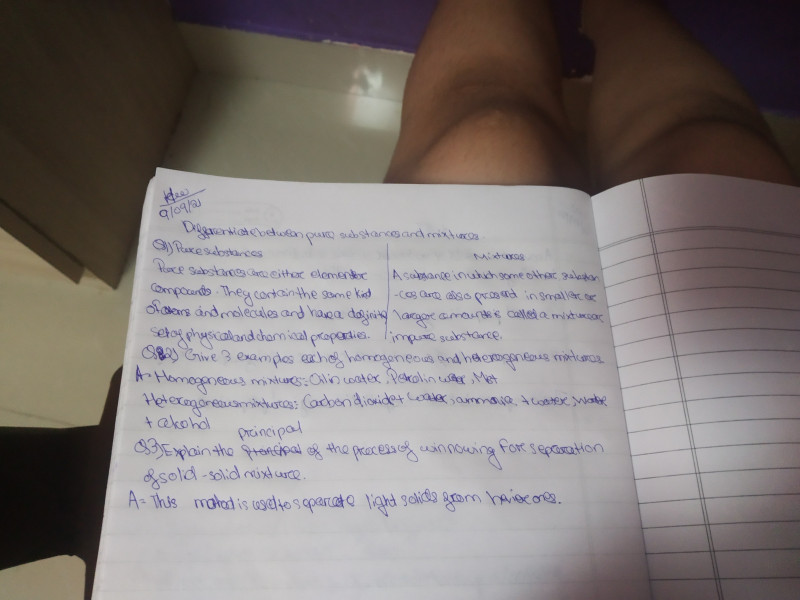 9/09/21
Differentiate between pure substances and mixtures.
Q1) Pure substances
Mixtures
Pure substances are either element or
compounds. They contain the same kid
of atoms and molecules and have a definite
set of physical and chemical properties.
A substance in which some other substan
-ces are also present in smaller or
larger amounts is called a mixture or
impure substance.
Q2) Give 3 examples each of homogeneous and heterogeneous mixtures
A- Homogeneous mixtures: Oil in water, Petrol in water,
Heterogeneous mixtures: Carbon dioxide + water, ammonia + water, water
+ alcohol
principal
Q3) Explain the of the process of winnowing for separation
of solid-solid mixture.
A= This method is used to separate light solids from heavier ones.